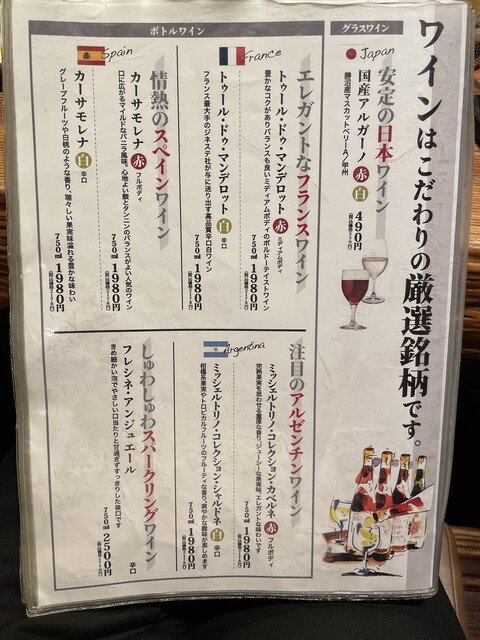 ワインはこだわりの厳選銘柄です。
グラスワイン
Japan
安定の日本ワイン
国産アルガーノ 赤 白
勝沼産マスカットベリーA/甲州
490円
ボトルワイン
France
エレガントなフランスワイン
トゥール・ドゥ・マンデロット 赤 ミディアムボディ
豊かなコクがありバランスも良いミディアムボディのボルドーテイストワイン
750ml 1980円
トゥール・ドゥ・マンデロット 白 辛口
フランス最大手のジネステ社が与に送り出す高品質辛口白ワイン
750ml 1980円
Spain
情熱のスペインワイン
カーサモレナ 赤 フルボディ
口に広がるマイルドなバニラ風味。心地よい酸とタンニンのバランスがよい人気のワイン
750ml 1980円
カーサモレナ 白 辛口
グレープフルーツや白桃のような香り、瑞々しい果実味溢れる豊かな味わい
750ml 1980円
Argentina
注目のアルゼンチンワイン
ミッシェルトリノ・コレクション・カベルネ 赤 フルボディ
完熟果実を思わせる濃厚な香り、ジューシーな果実味、エレガントな味わいです
750ml 1980円
ミッシェルトリノ・コレクション・シャルドネ 白 辛口
柑橘系果実やトロピカルフルーツのフルーティな香り、爽やかな酸味が楽しめます
750ml 1980円
しゅわしゅわスパークリングワイン
フレシネ・アンジュエール 辛口
きめ細かい泡でやさしい口当たりと甘過ぎずすっきりした後口です
750ml 2500円